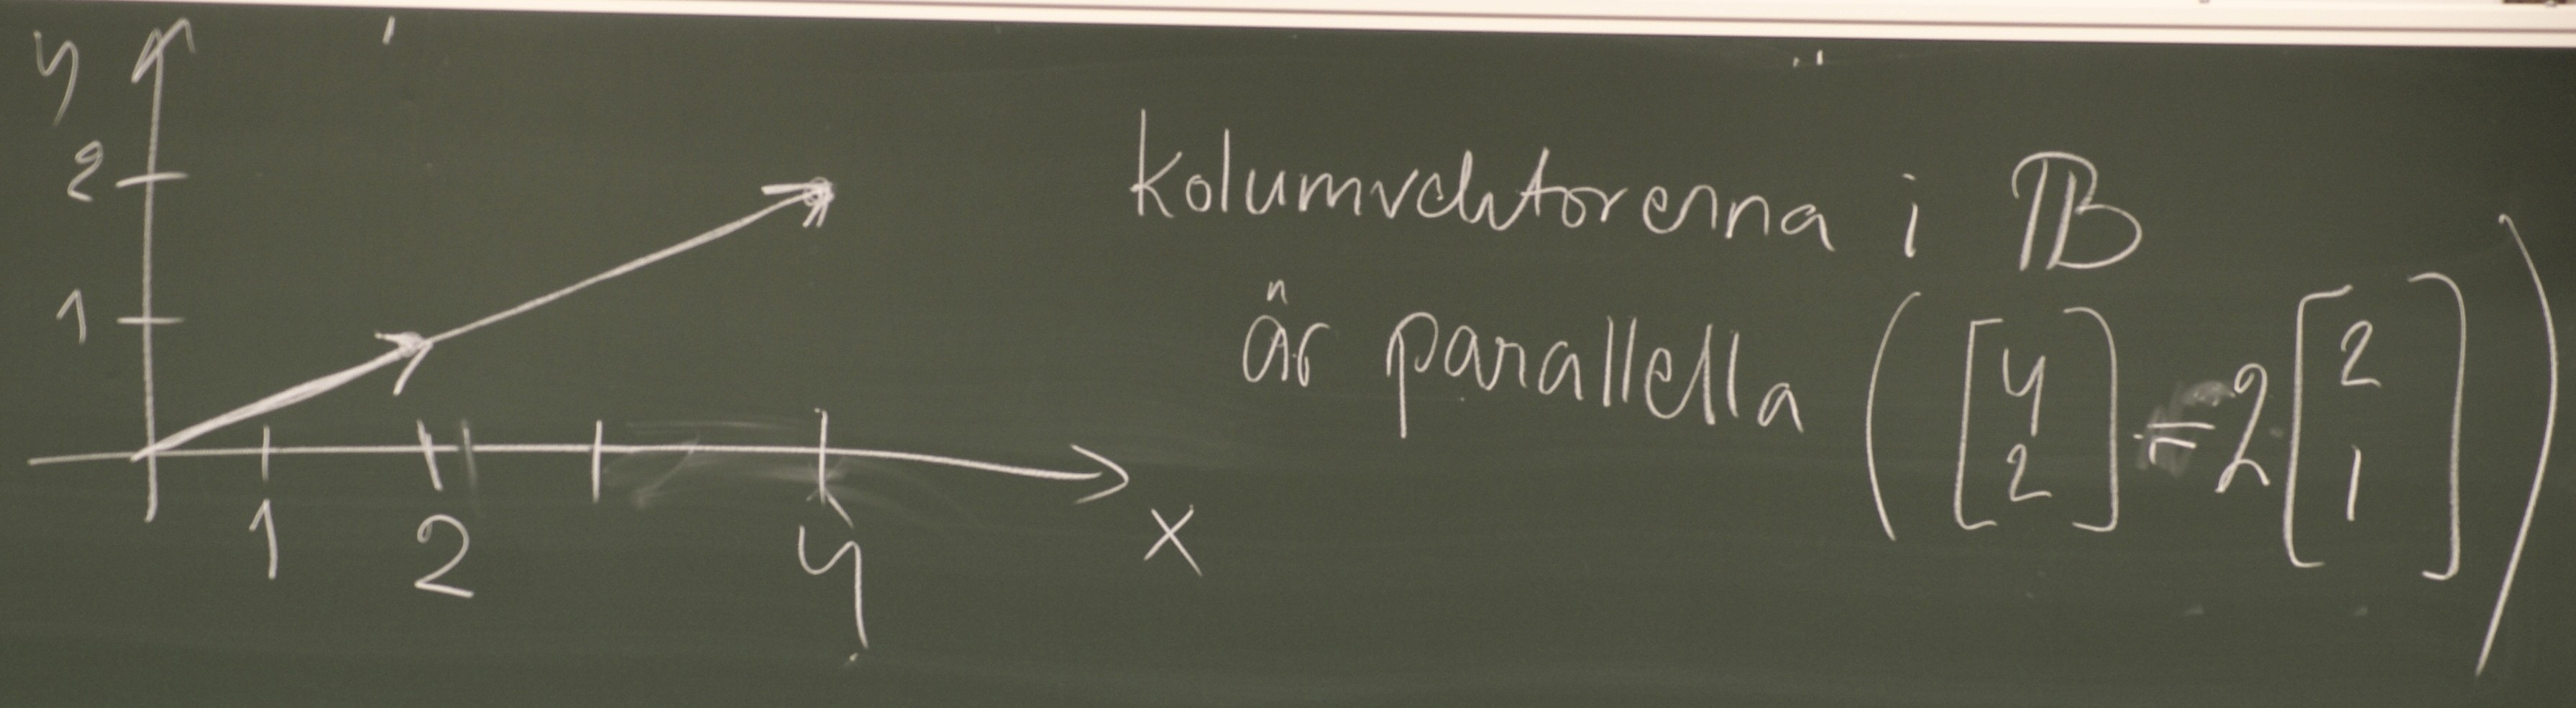 y
2
1
1 2 4
x
kolumvektorerna i B
är parallella ([4 2] = 2 [2 1])